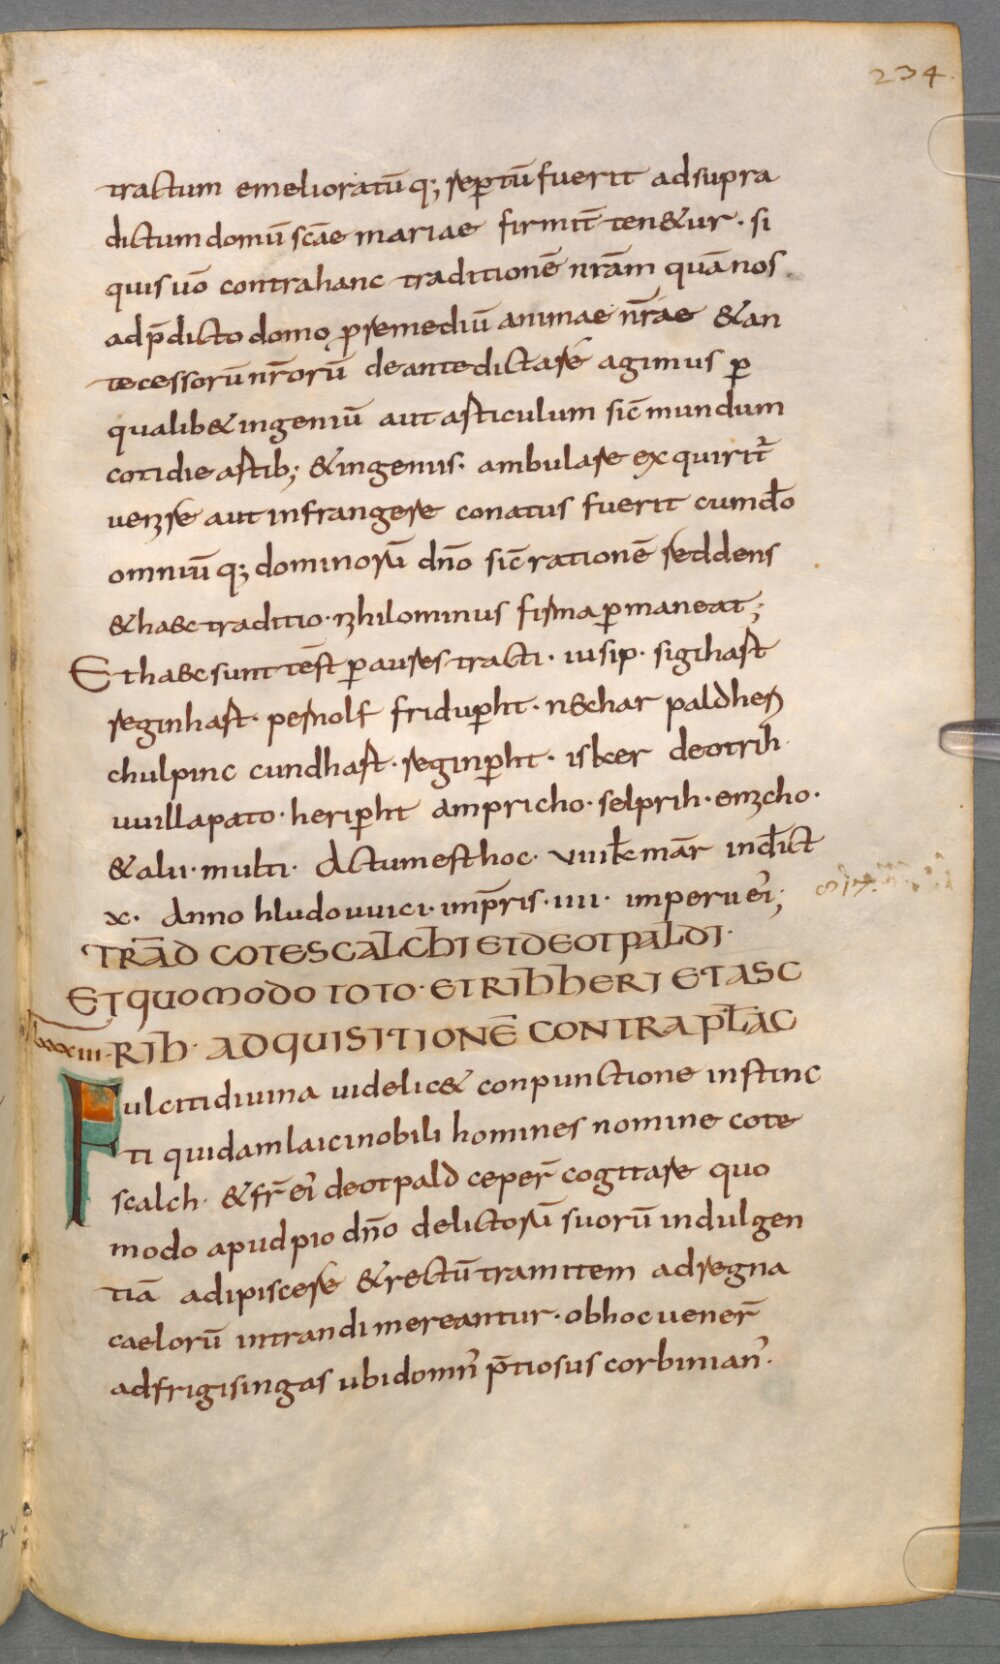 234.
tractum emelioratū q; reptū fuerit ad supra
dictum domū scāe mariae firmit̄ ten&ur · si
quis uō contra hanc traditionē nrām quā nos
ad p̄dicto domo p remediū animae nr̄ae & an
tecessorū nr̄orū de ante dictare agimus ꝑ
qualib& ingeniū aut asticulum sic̄ mundum
cotidie astib; & ingeniis · ambulare exquirit̄
uertere aut infrangere conatus fuerit cum dō
omniū q; dominorū dn̄o sic̄ rationē reddens
& haec traditio · nihilominus firma ꝑmaneat;
Et haec sunt test̄ ꝑ aures tracti · iusip · sigihart
reginhart · pernolf friduꝑht · nechar paldheri
chulpinc cundhart · reginꝑht · isker deotrih
uuillapato · heriꝑht ampricho · selprih · enzcho ·
& alii · multi · Actum est hoc · viiii kł mar̄ indict
x · Anno hludouuici · imp̄ris · iiii · imperii ei;
TRAD̄ COTESCALCHI ET DEOTPALDI ·
ET QUOMODO TOTO · ET RIHHERI ET ASC
lxxxiii · RIH · ADQUISITIONĒ CONTRA PL̄AC
Fulciti diuina uidelic& conpunctione instinc
ti quidam laici nobili homines nomine cote
scalch · & fr̄ ei deotpald ceper̄ cogitare quo
modo apud pio dn̄o delictorū suorū indulgen
tiā adipiscere & rectū tramitem ad regna
caelorū intrandi mereantur · ob hoc uener̄
ad frigisingas ubi domn' p̄tiosus corbinian' ·